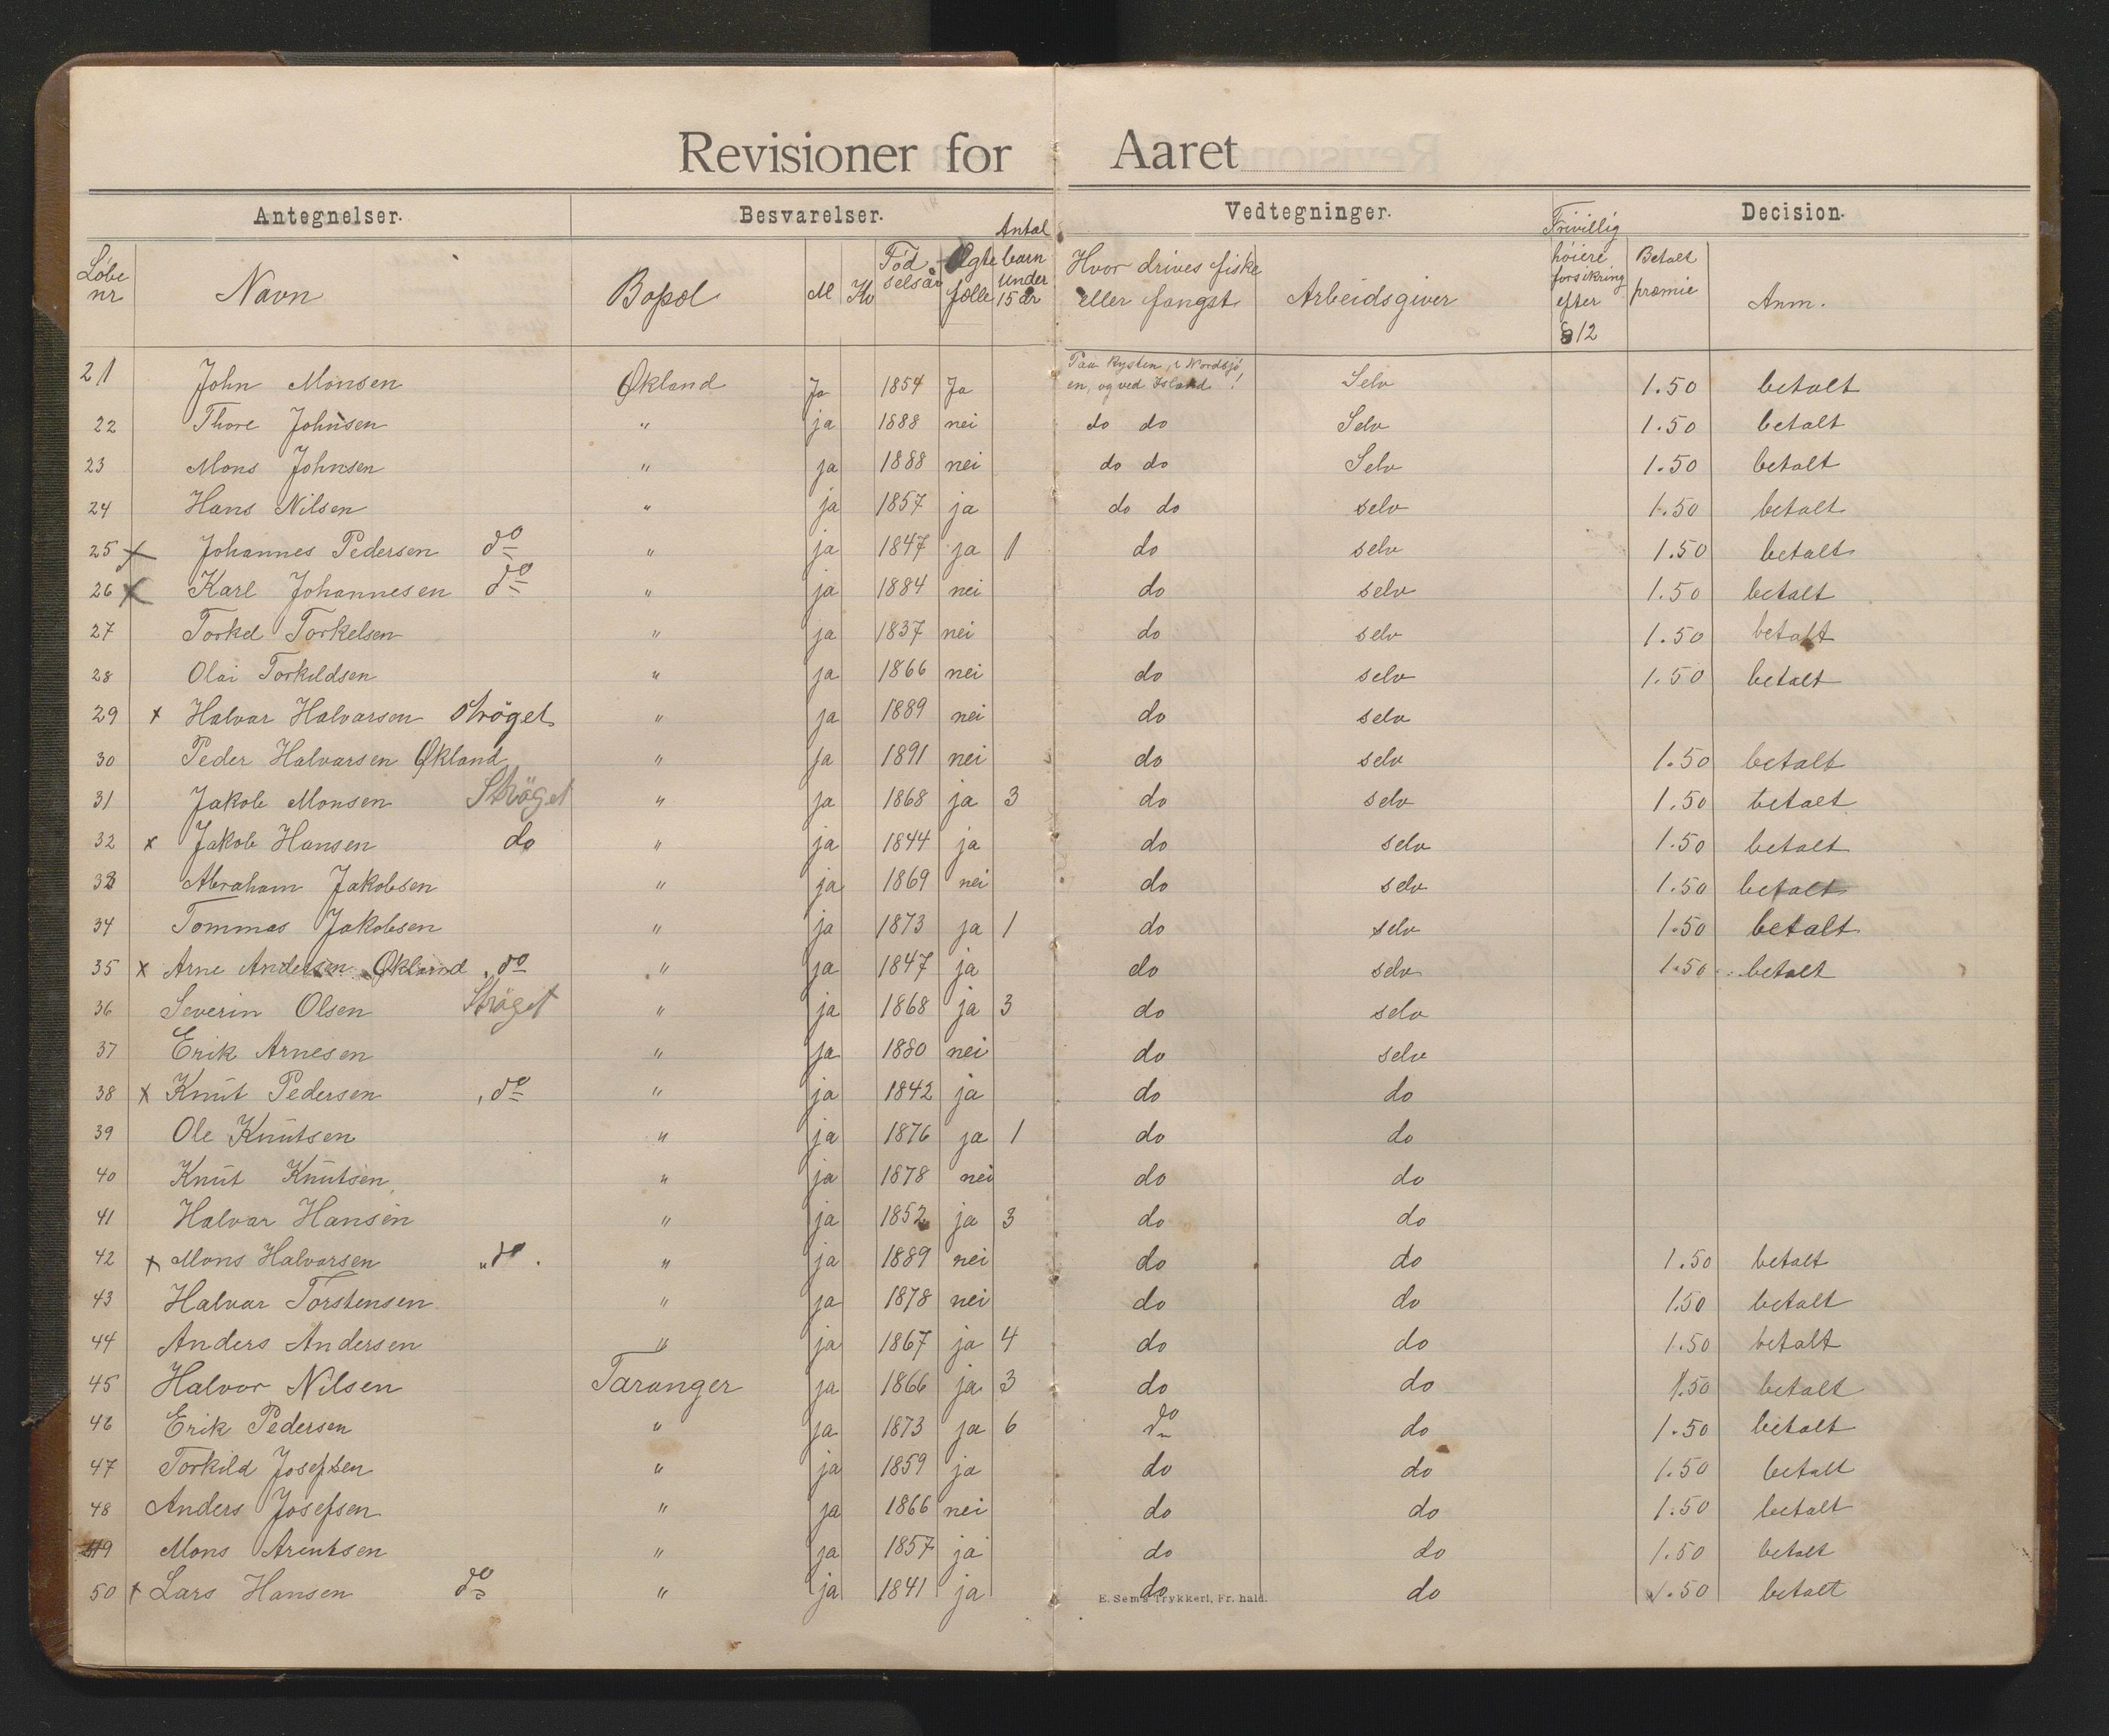 Revisioner for Aaret
Antegnelser. Besvarelser. Vedtegninger. Decision.
Løbe nr Navn Bopæl M Kv Fød selsår Ægte fælle Antal barn under 15 år Hvor drives fiske eller fangst Arbeidsgiver Frivillig høiere forsikring efter § 12 Betalt præmie Anm.
21 John Monsen Økland Ja 1854 Ja Paa kysten, i Nordsjø en, og ved Island! Selv 1.50 betalt
22 Thore Johnsen " ja 1888 nei do do Selv 1.50 betalt
23 Mons Johnsen " ja 1888 nei do do Selv 1.50 betalt
24 Hans Nilsen " ja 1857 ja do do selv 1.50 betalt
25 x Johannes Pedersen do " ja 1847 ja 1 do selv 1.50 betalt
26 x Karl Johannesen do " ja 1884 nei do selv 1.50 betalt
27 Torkel Torkelsen " ja 1837 nei do selv 1.50 betalt
28 Olai Torkildsen " ja 1866 nei do selv 1.50 betalt
29 x Halvar Halvarsen Strøget " ja 1889 nei do selv
30 Peder Halvarsen Økland " ja 1891 nei do selv 1.50 betalt
31 Jakob Monsen Strøget " ja 1868 ja 3 do selv 1.50 betalt
32 x Jakob Hansen do " ja 1844 ja do selv 1.50 betalt
33 Abraham Jakobsen " ja 1869 nei do selv 1.50 betalt
34 Tommas Jakobsen " ja 1873 ja 1 do selv 1.50 betalt
35 x Arne Andersen Økland, do " ja 1847 ja do selv 1.50 betalt
36 Severin Olsen Strøget " ja 1868 ja 3 do selv
37 Erik Arnesen " ja 1880 nei do selv
38 x Knut Pedersen , do " ja 1842 ja do do
39 Ole Knutsen " ja 1876 ja 1 do do
40 Knut Knutsen " ja 1878 nei do do
41 Halvar Hansen " ja 1852 ja 3 do do
42 x Mons Halvarsen „ do . " ja 1889 nei do do 1.50 betalt
43 Halvar Torstensen " ja 1878 nei do do 1.50 betalt
44 Anders Andersen " ja 1867 ja 4 do do 1.50 betalt
45 Halvor Nilsen Taranger ja 1866 ja 3 do do 1.50 betalt
46 Erik Pedersen " ja 1873 ja 6 do do 1.50 betalt
47 Torkild Josefsen " ja 1859 ja do do 1.50 betalt
48 Anders Josefsen " ja 1866 nei do do 1.50 betalt
49 Mons Arentsen " ja 1857 ja do do 1.50 betalt
50 x Lars Hansen do " ja 1841 ja do do 1.50 betalt
E. Sem's Trykkeri, Fr. hald.